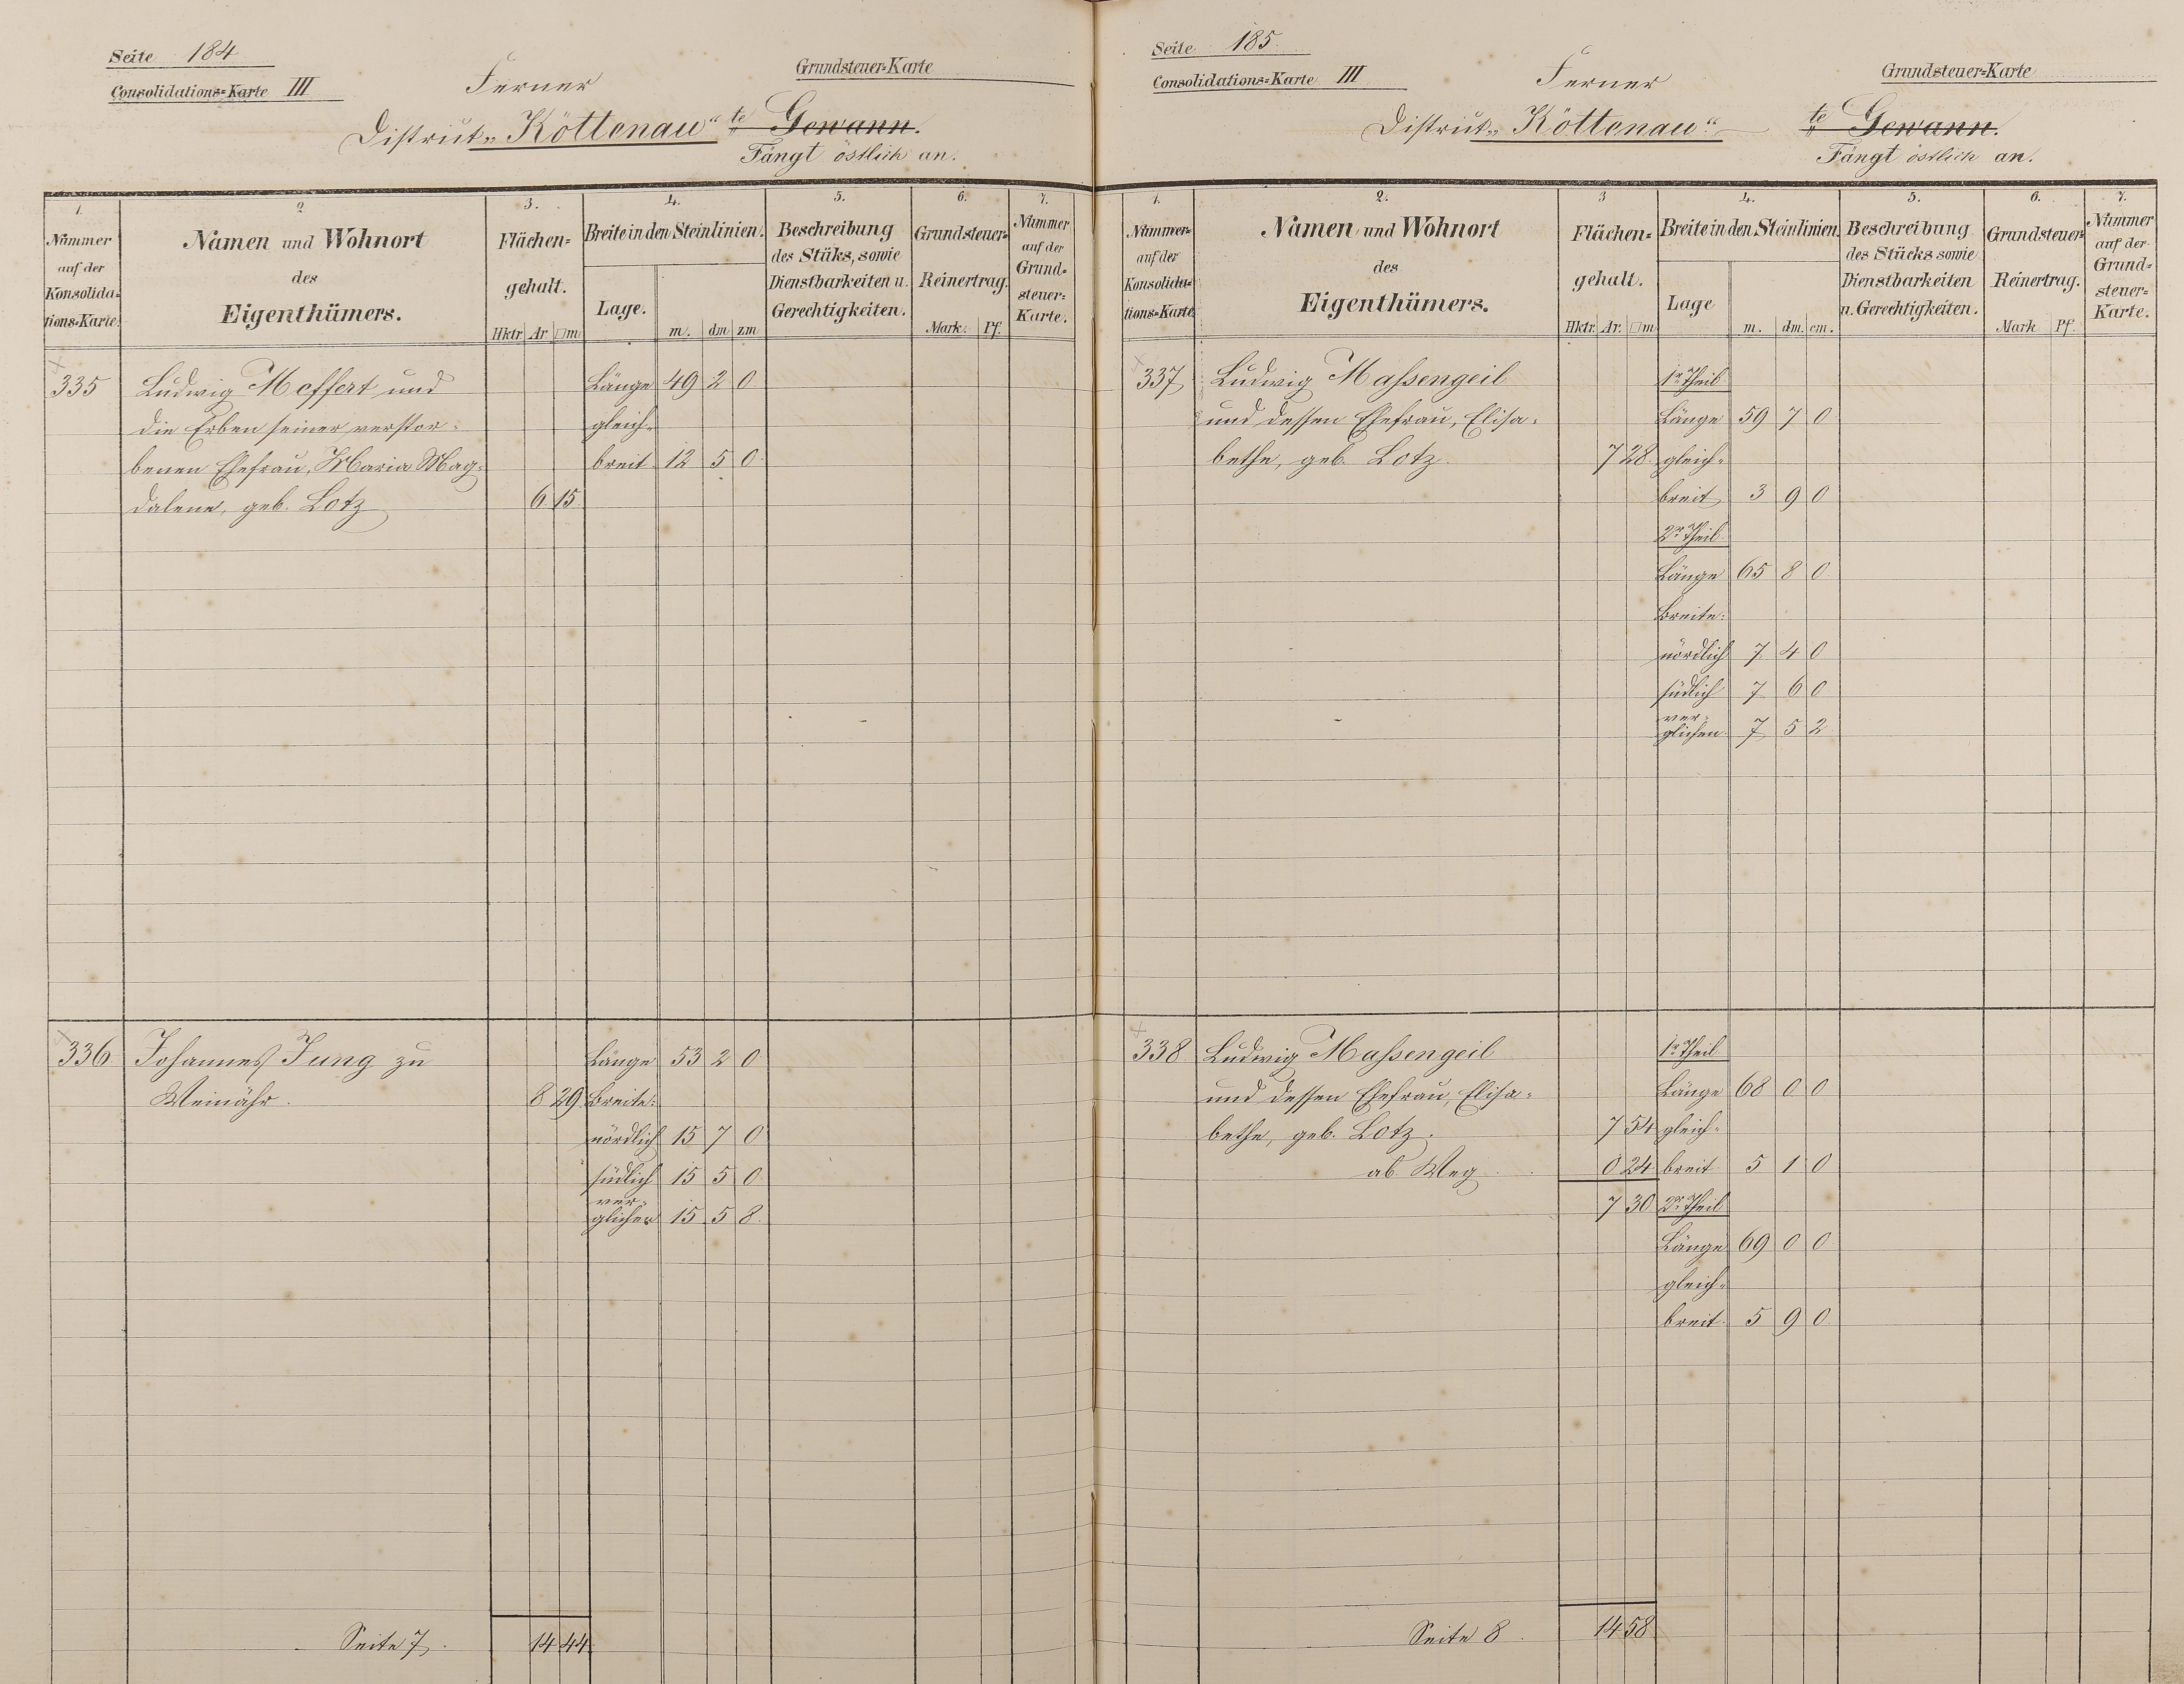 Seite 184
Consolidations=Karte III
Ferner
Grundsteuer=Karte
District „Köttenau“ te Gewann.
Fängt östlich an.
1. 2 3. 4. 5. 6. 7.
Nummer auf der Konsolida=tions=Karte.
Namen und Wohnort des Eigenthümers.
Flächen=gehalt.
Hktr. Ar. □m
Breite in den Steinlinien.
Lage. m. dm zm
Beschreibung des Stüks, sowie Dienstbarkeiten u. Gerechtigkeiten.
Grundsteuer=Reinertrag.
Mark. Pf.
Nummer auf der Grund=steuer=Karte.
335 Ludwig Meffert und Länge 49 2 0
die Erben seiner verstor= gleich=
benen Ehefrau, Maria Mag= breit 12 5 0
dalene, geb. Lotz 6 15
336 Johannes Jung zu Länge 53 2 0
Weinähr. 8 29 Breite:
nördlich 15 7 0
südlich 15 5 0
ver=
glichen 15 5 8
Seite 7. 14 44
Seite 185.
Consolidations=Karte III
Ferner
Grundsteuer=Karte
District „Köttenau“ te Gewann.
Fängt östlich an.
1. 2. 3 4. 5. 6. 7.
Nummer auf der Konsolida=tions=Karte
Namen und Wohnort des Eigenthümers.
Flächen=gehalt.
Hktr. Ar. □m
Breite in den Steinlinien.
Lage m. dm. cm.
Beschreibung des Stücks sowie Dienstbarkeiten u. Gerechtigkeiten.
Grundsteuer=Reinertrag.
Mark Pf.
Nummer auf der Grund=steuer=Karte.
337 Ludwig Maßengeil 1r Theil
und dessen Ehefrau, Elisa= Länge 59 7 0
bethe, geb. Lotz. 7 28 gleich=
breit 3 9 0
2r Theil
Länge 65 8 0
Breite:
nördlich 7 4 0
südlich 7 6 0
ver=
glichen 7 5 2
338 Ludwig Maßengeil 1r Theil
und dessen Ehefrau, Elisa= Länge 68 0 0
bethe, geb. Lotz. 7 54 gleich=
ab Weg 0 24 breit 5 1 0
7 30 2r Theil
Länge 69 0 0
gleich=
breit 5 9 0
Seite 8. 14 58